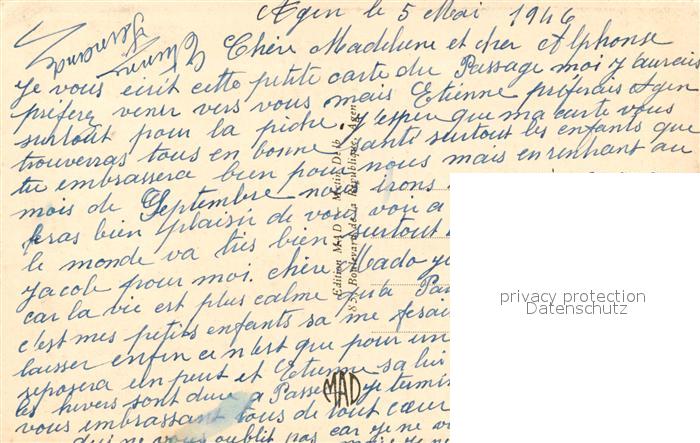 Agen le 5 Mai 1946
Chère Madeleine et cher Alphonse
Je vous écrit cette petite carte du Passage moi j'aurais
préferez venir vers vous mais Etienne préferais Agen
surtout pour la pêche j'esper que ma carte vous
trouverras tous en bonne santé surtout les enfants que
tu embrassera bien pour nous mais en renhant au
mois de Septembre nous irons
feras bien plaisir de vous voir a
le monde va très bien surtout
Jacob pour moi. chère Mado je
car la vie est plus calme qu'a Par
c'est mes petits enfants sa me fesai
laisser enfin ce n'est que pour un
reposera un peut et Etienne sa lui
les hivers sont dure a Passer je termi
vous embrassant tous de tout cœur
qui ne vous oublit pas car je ne
Etienne
Edition MAD - Médin Dalb
85, Boulevard de la République, Agen
MAD
privacy protection
Datenschutz